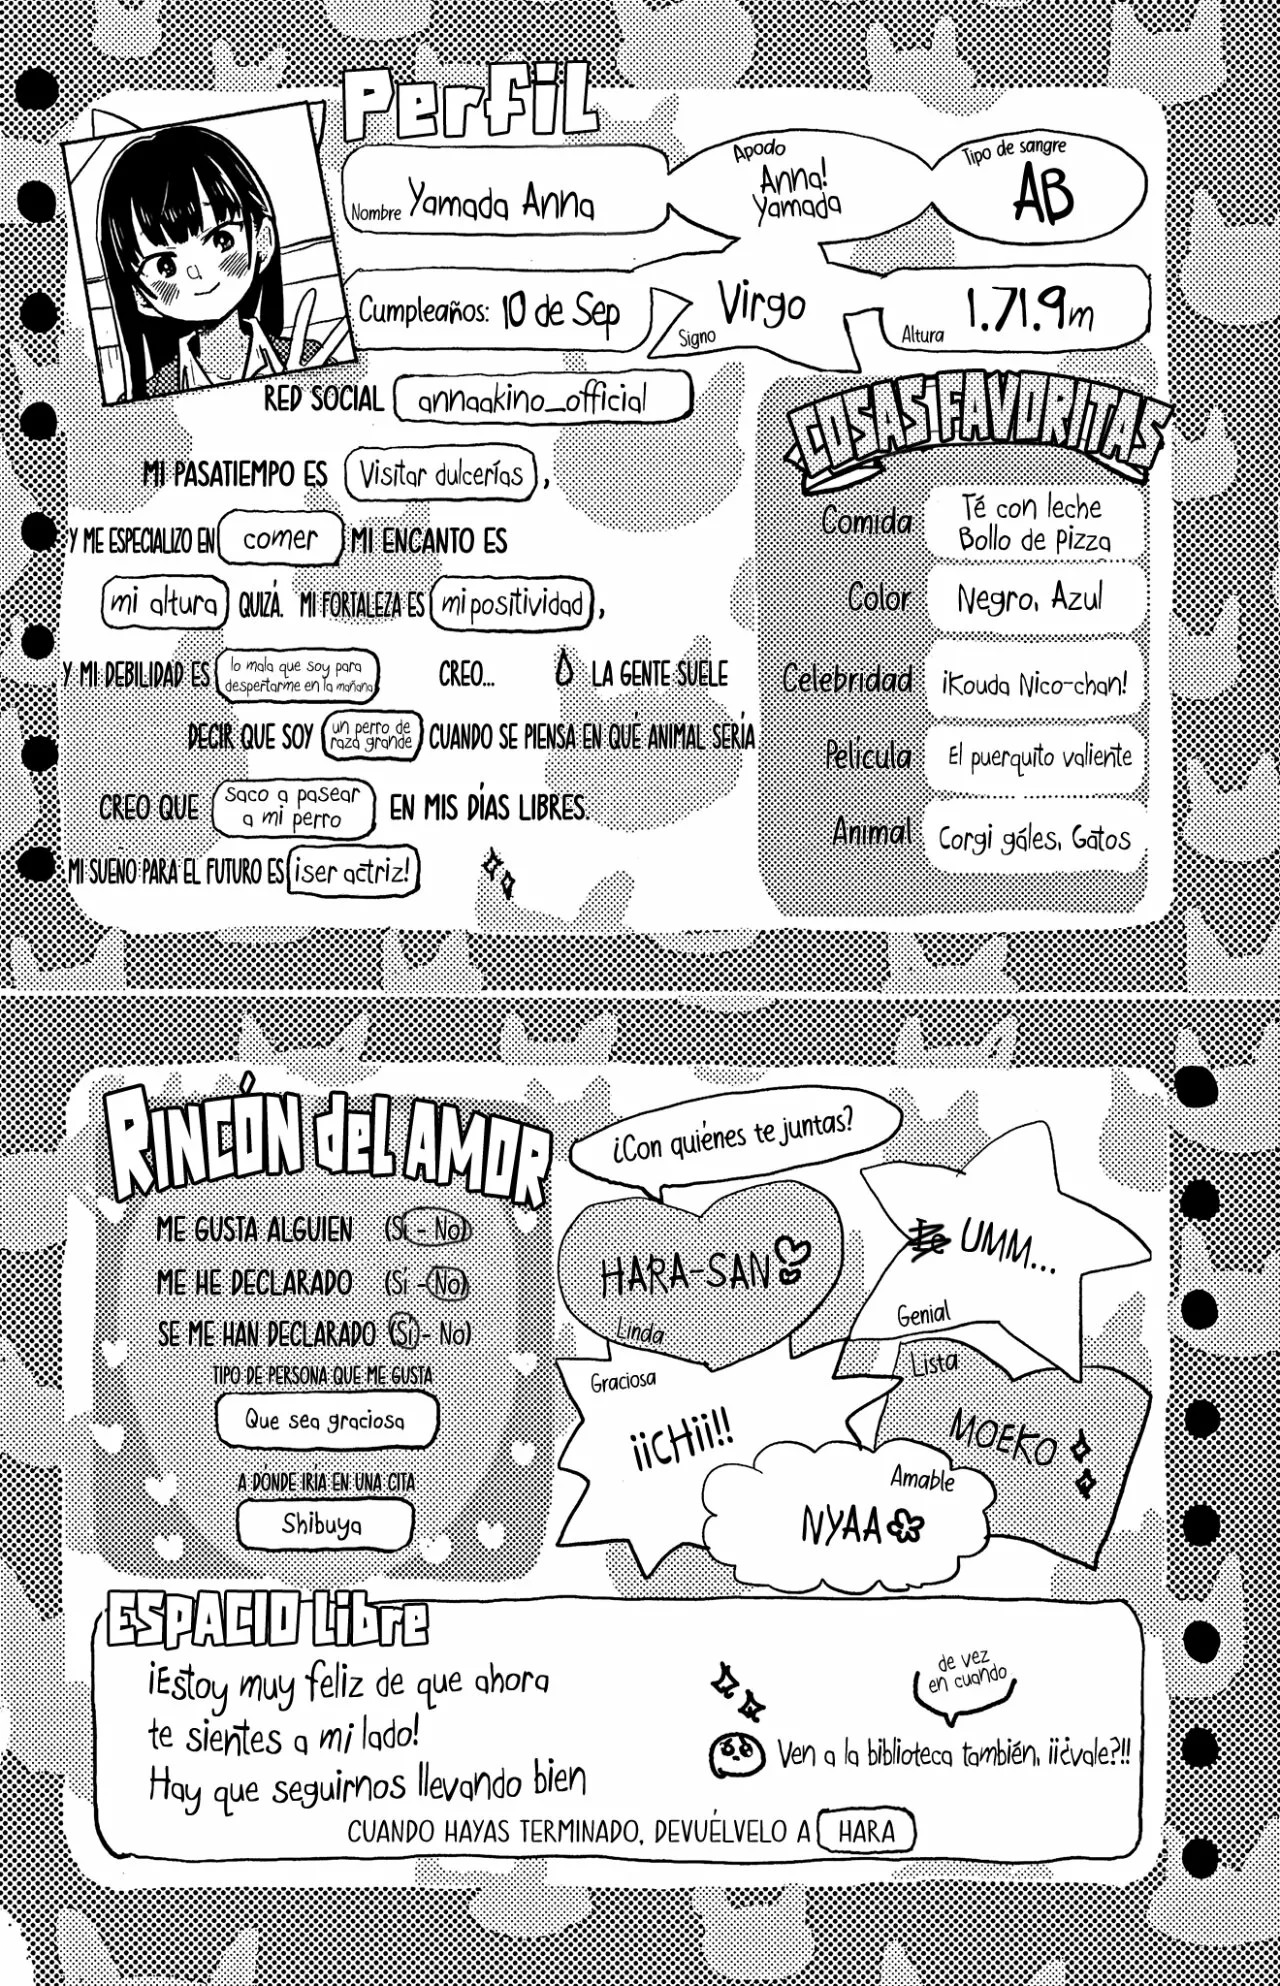 Perfil
Nombre Yamada Anna
Apodo
Anna!
Yamada
Tipo de sangre
AB
Cumpleaños: 10 de Sep
Virgo
Signo
1.71.9m
Altura
RED SOCIAL annaakino_official
MI PASATIEMPO ES Visitar dulcerías,
Y ME ESPECIALIZO EN comer MI ENCANTO ES
mi altura QUIZÁ. MI FORTALEZA ES mi positividad,
Y MI DEBILIDAD ES lo mala que soy para
despertarme en la mañana CREO... LA GENTE SUELE
DECIR QUE SOY un perro de
raza grande CUANDO SE PIENSA EN QUÉ ANIMAL SERÍA
CREO QUE saco a pasear
a mi perro EN MIS DÍAS LIBRES.
MI SUEÑO PARA EL FUTURO ES ¡ser actriz!
COSAS FAVORITAS
Comida Té con leche
Bollo de pizza
Color Negro, Azul
Celebridad ¡Kouda Nico-chan!
Película El puerquito valiente
Animal Corgi gáles, Gatos
RINCÓN del AMOR
ME GUSTA ALGUIEN (Sí - No)
ME HE DECLARADO (Sí - No)
SE ME HAN DECLARADO (Sí - No)
TIPO DE PERSONA QUE ME GUSTA
Que sea graciosa
A DÓNDE IRIA EN UNA CITA
Shibuya
¿Con quiénes te juntas?
HARA-SAN
Linda
UMM...
Genial
Graciosa
¡¡CHii!!
Lista
MOEKO
Amable
NYAA
ESPACIO Libre
¡Estoy muy feliz de que ahora
te sientes a mi lado!
Hay que seguirnos llevando bien
de vez
en cuando
Ven a la biblioteca también, ¡¡¿vale?!!
CUANDO HAYAS TERMINADO, DEVUÉLVELO A HARA